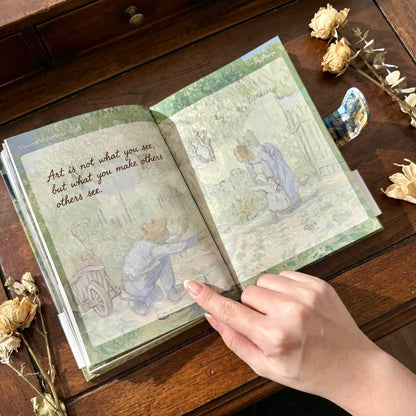 Art is not what you see,
but what you make others
others see.